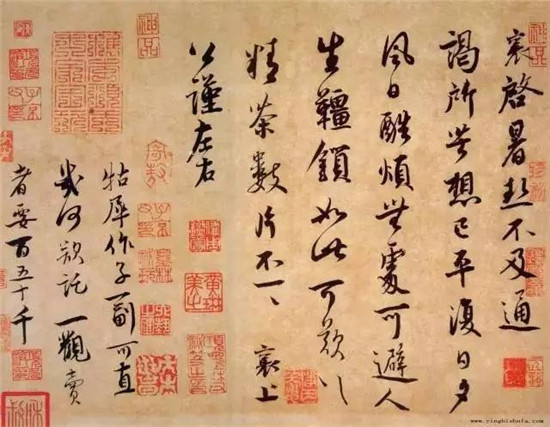 襄啓暑熱不及通
謁所苦想已平復日夕
風日酷煩無處可避人
生韁鎖如此可歎〻
精茶數片不一〻 襄上
公謹左右
牯犀作子一副可直
幾何欲託一觀賣
者要百五十千
神品
www.yingbishufa.com